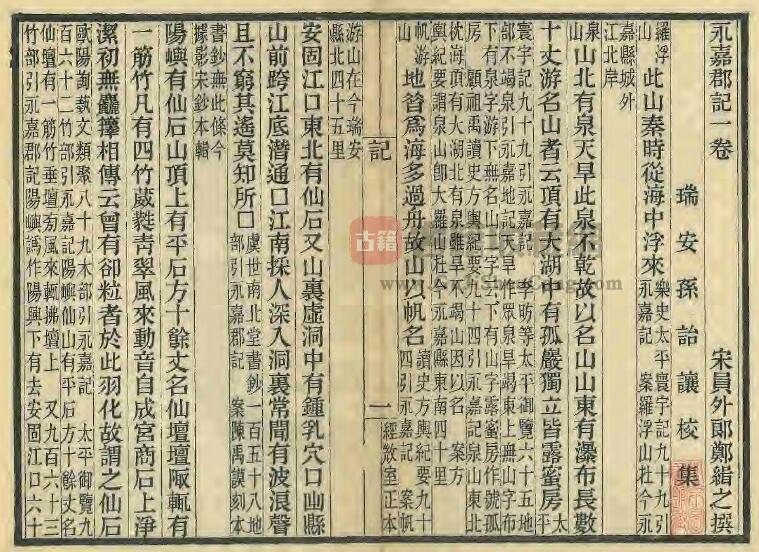 永嘉郡記一卷 宋員外郎鄭緝之撰
瑞安孫詒讓校集
羅浮山 此山秦時從海中浮來 樂史太平寰宇記九十九引永嘉記 案羅浮山杜今永
嘉縣城外江北岸
泉山 北有泉天旱此泉不乾故以名山山東有瀑布長數
十丈游名山者云頂有大湖中有孤嚴獨立皆露蜜房 太平
寰宇記九十九引永嘉記 李昉等太平御覽六十五地
部不竭泉引永嘉地記天旱作眾泉旱竭東上無山字布
下有泉字游下無名山二字云下有山字露蜜房作號孤
房 顧祖禹讀史方輿紀要九十四引永嘉記泉山東北
枕海頂有大湖北有泉雖旱不竭山因以名 案方
輿紀要謂泉山卽大羅山杜今永嘉縣東南四十里
帆游山 地昔爲海多過舟故山以帆名 讀史方輿紀要九十四引永嘉記 案帆
記 一 經敚室正本
游山在今瑞安縣北四十五里
安固江口東北有仙石又山裏虛洞中有鍾乳穴口幽縣
山前跨江底潛通囗江南採人深入洞裏常聞有波浪聲
且不窮其遙莫知所囗 虞世南北堂書鈔一百五十八地部引永嘉郡記 案陳禹謨刻本
書鈔無此條今據影宋鈔本輯
陽嶼有仙石山頂上有平石方十餘丈名仙壇壇陬輒有
一筋竹凡有四竹葳蕤靑翠風來動音自成宮商石上淨
潔初無麤籜相傳云曾有卻粒者於此羽化故謂之仙石
歐陽詢蓺文類聚八十九木部引永嘉記 太平御覽九
百六十二竹部引永嘉記陽嶼仙山有平石方十餘丈名
仙壇有一筋竹垂壇旁風來輒拂壇上 又九百六十三
竹部引永嘉郡記陽嶼譌作陽興下有去安固江口六十